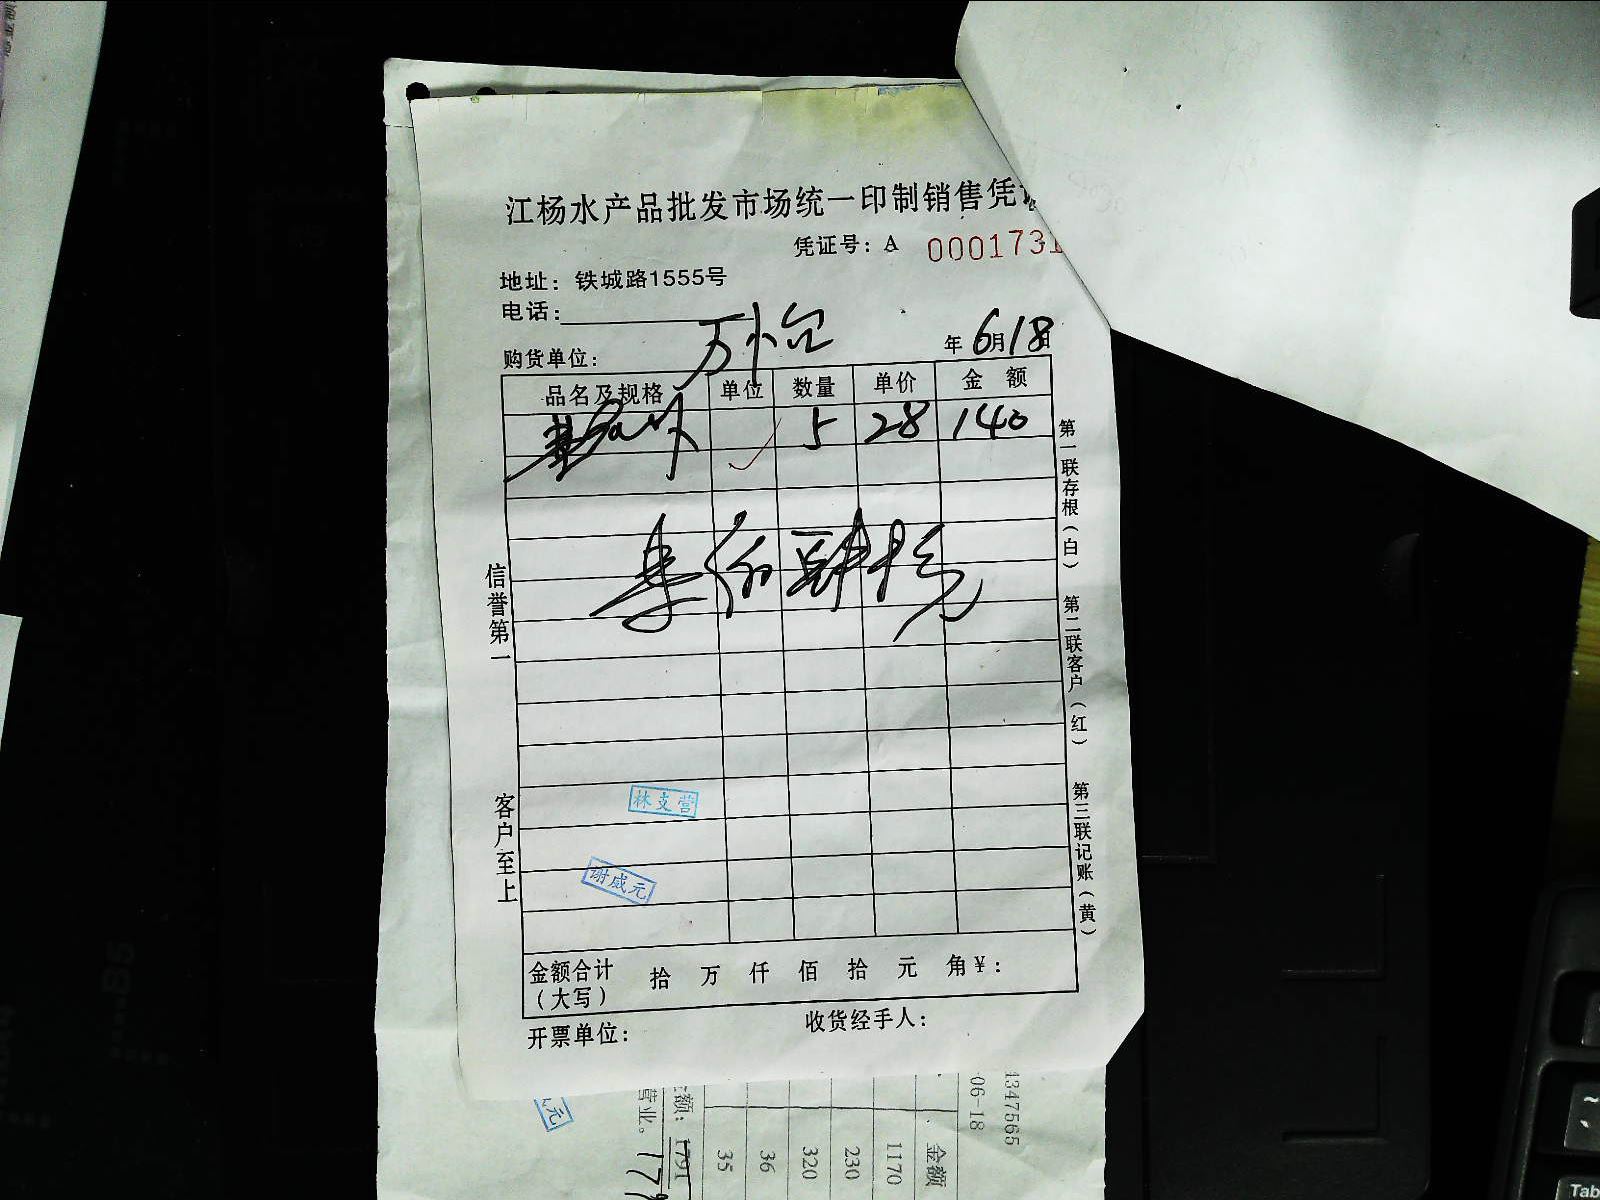 江杨水产品批发市场统一印制销售凭
凭证号: A 0001731
地址: 铁城路1555号
电话:
购货单位:
年 6月18日
品名及规格 单位 数量 单价 金额
5 28 140
佰肆拾
第一联存根(白) 第二联客户(红) 第三联记账(黄)
信誉第一
客户至上
林支营
谢威元
金额合计 拾 万 仟 佰 拾 元 角 ¥:
(大写)
开票单位: 收货经手人:
1347565
06-18
金额
1170
230
320
36
35
额: 1791
营业。
元
Tab